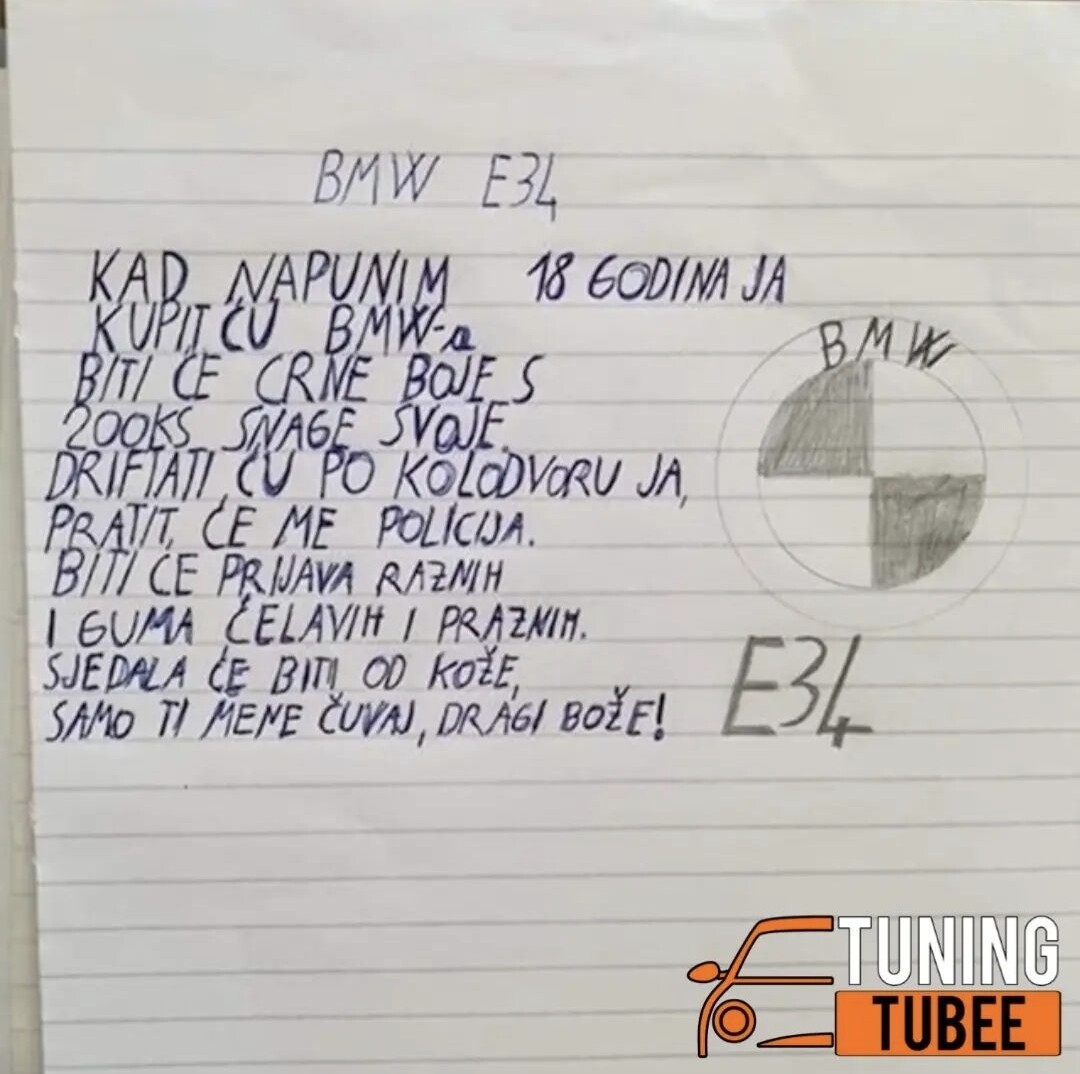 BMW E34
KAD NAPUNIM 18 GODINA JA
KUPIT ĆU BMW-a
BITI ĆE CRNE BOJE S
200KS SNAGE SVOJE.
DRIFTATI ĆU PO KOLODVORU JA,
PRATIT, ĆE ME POLICIJA.
BITI ĆE PRIJAVA RAZNIH
I GUMA ĆELAVIH I PRAZNIH.
SJEDALA ĆE BITI OD KOŽE,
SAMO TI MENE ČUVAJ, DRAGI BOŽE!
BMW
E34
TUNING
TUBEE